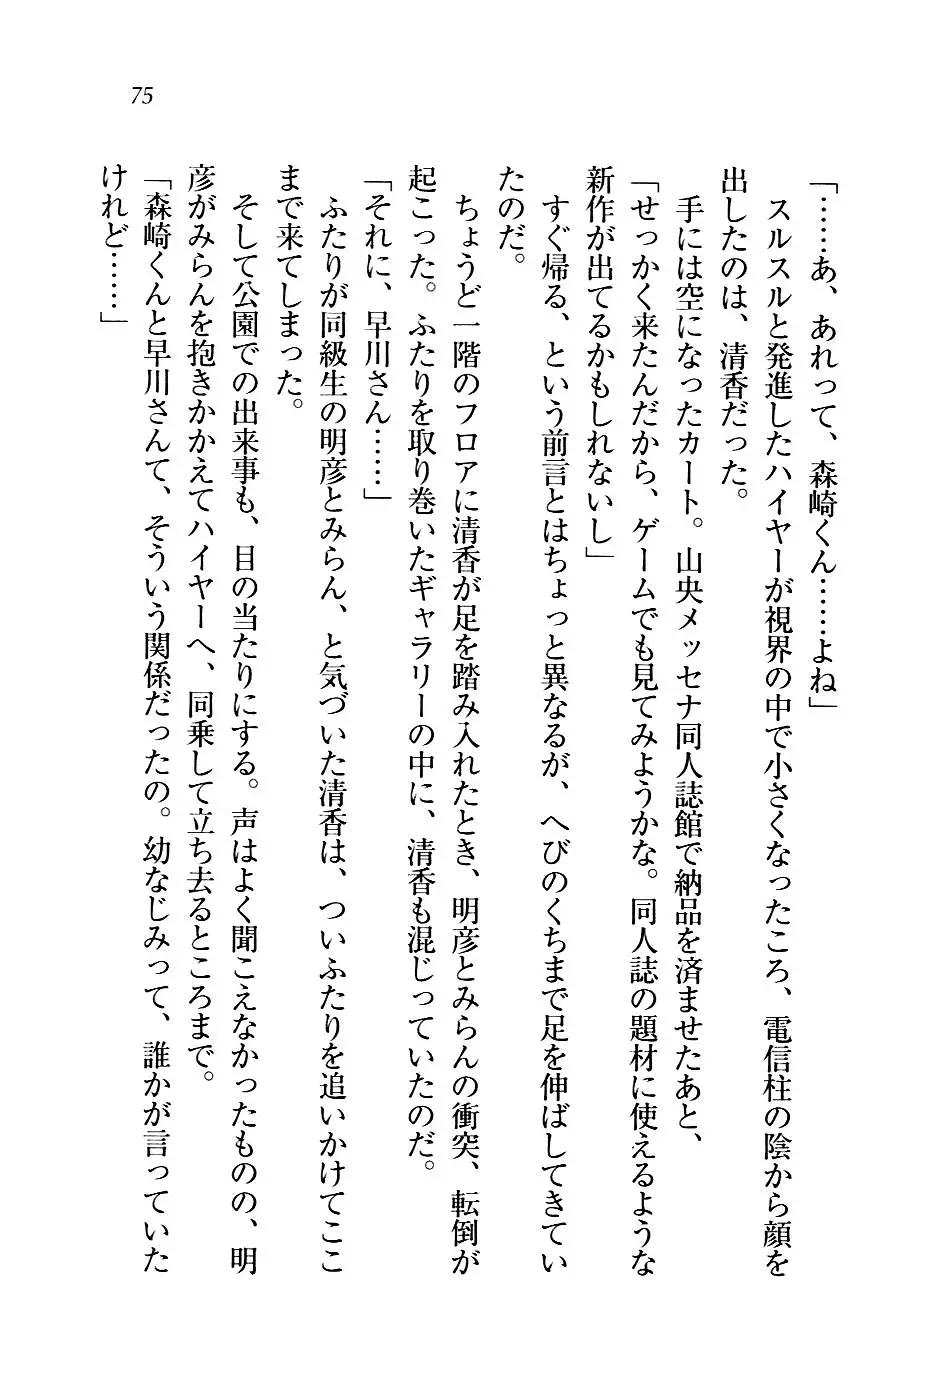 75
「……あ、あれって、森崎くん……よね」
スルスルと発進したハイヤーが視界の中で小さくなったころ、電信柱の陰から顔を
出したのは、清香だった。
手には空になったカート。山央メッセナ同人誌館で納品を済ませたあと、
「せっかく来たんだから、ゲームでも見てみようかな。同人誌の題材に使えるような
新作が出てるかもしれないし」
すぐ帰る、という前言とはちょっと異なるが、へびのくちまで足を伸ばしてきてい
たのだ。
ちょうど一階のフロアに清香が足を踏み入れたとき、明彦とみらんの衝突、転倒が
起こった。ふたりを取り巻いたギャラリーの中に、清香も混じっていたのだ。
「それに、早川さん……」
ふたりが同級生の明彦とみらん、と気づいた清香は、ついふたりを追いかけてここ
まで来てしまった。
そして公園での出来事も、目の当たりにする。声はよく聞こえなかったものの、明
彦がみらんを抱きかかえてハイヤーへ、同乗して立ち去るところまで。
「森崎くんと早川さんて、そういう関係だったの。幼なじみって、誰かが言っていた
けれど……」